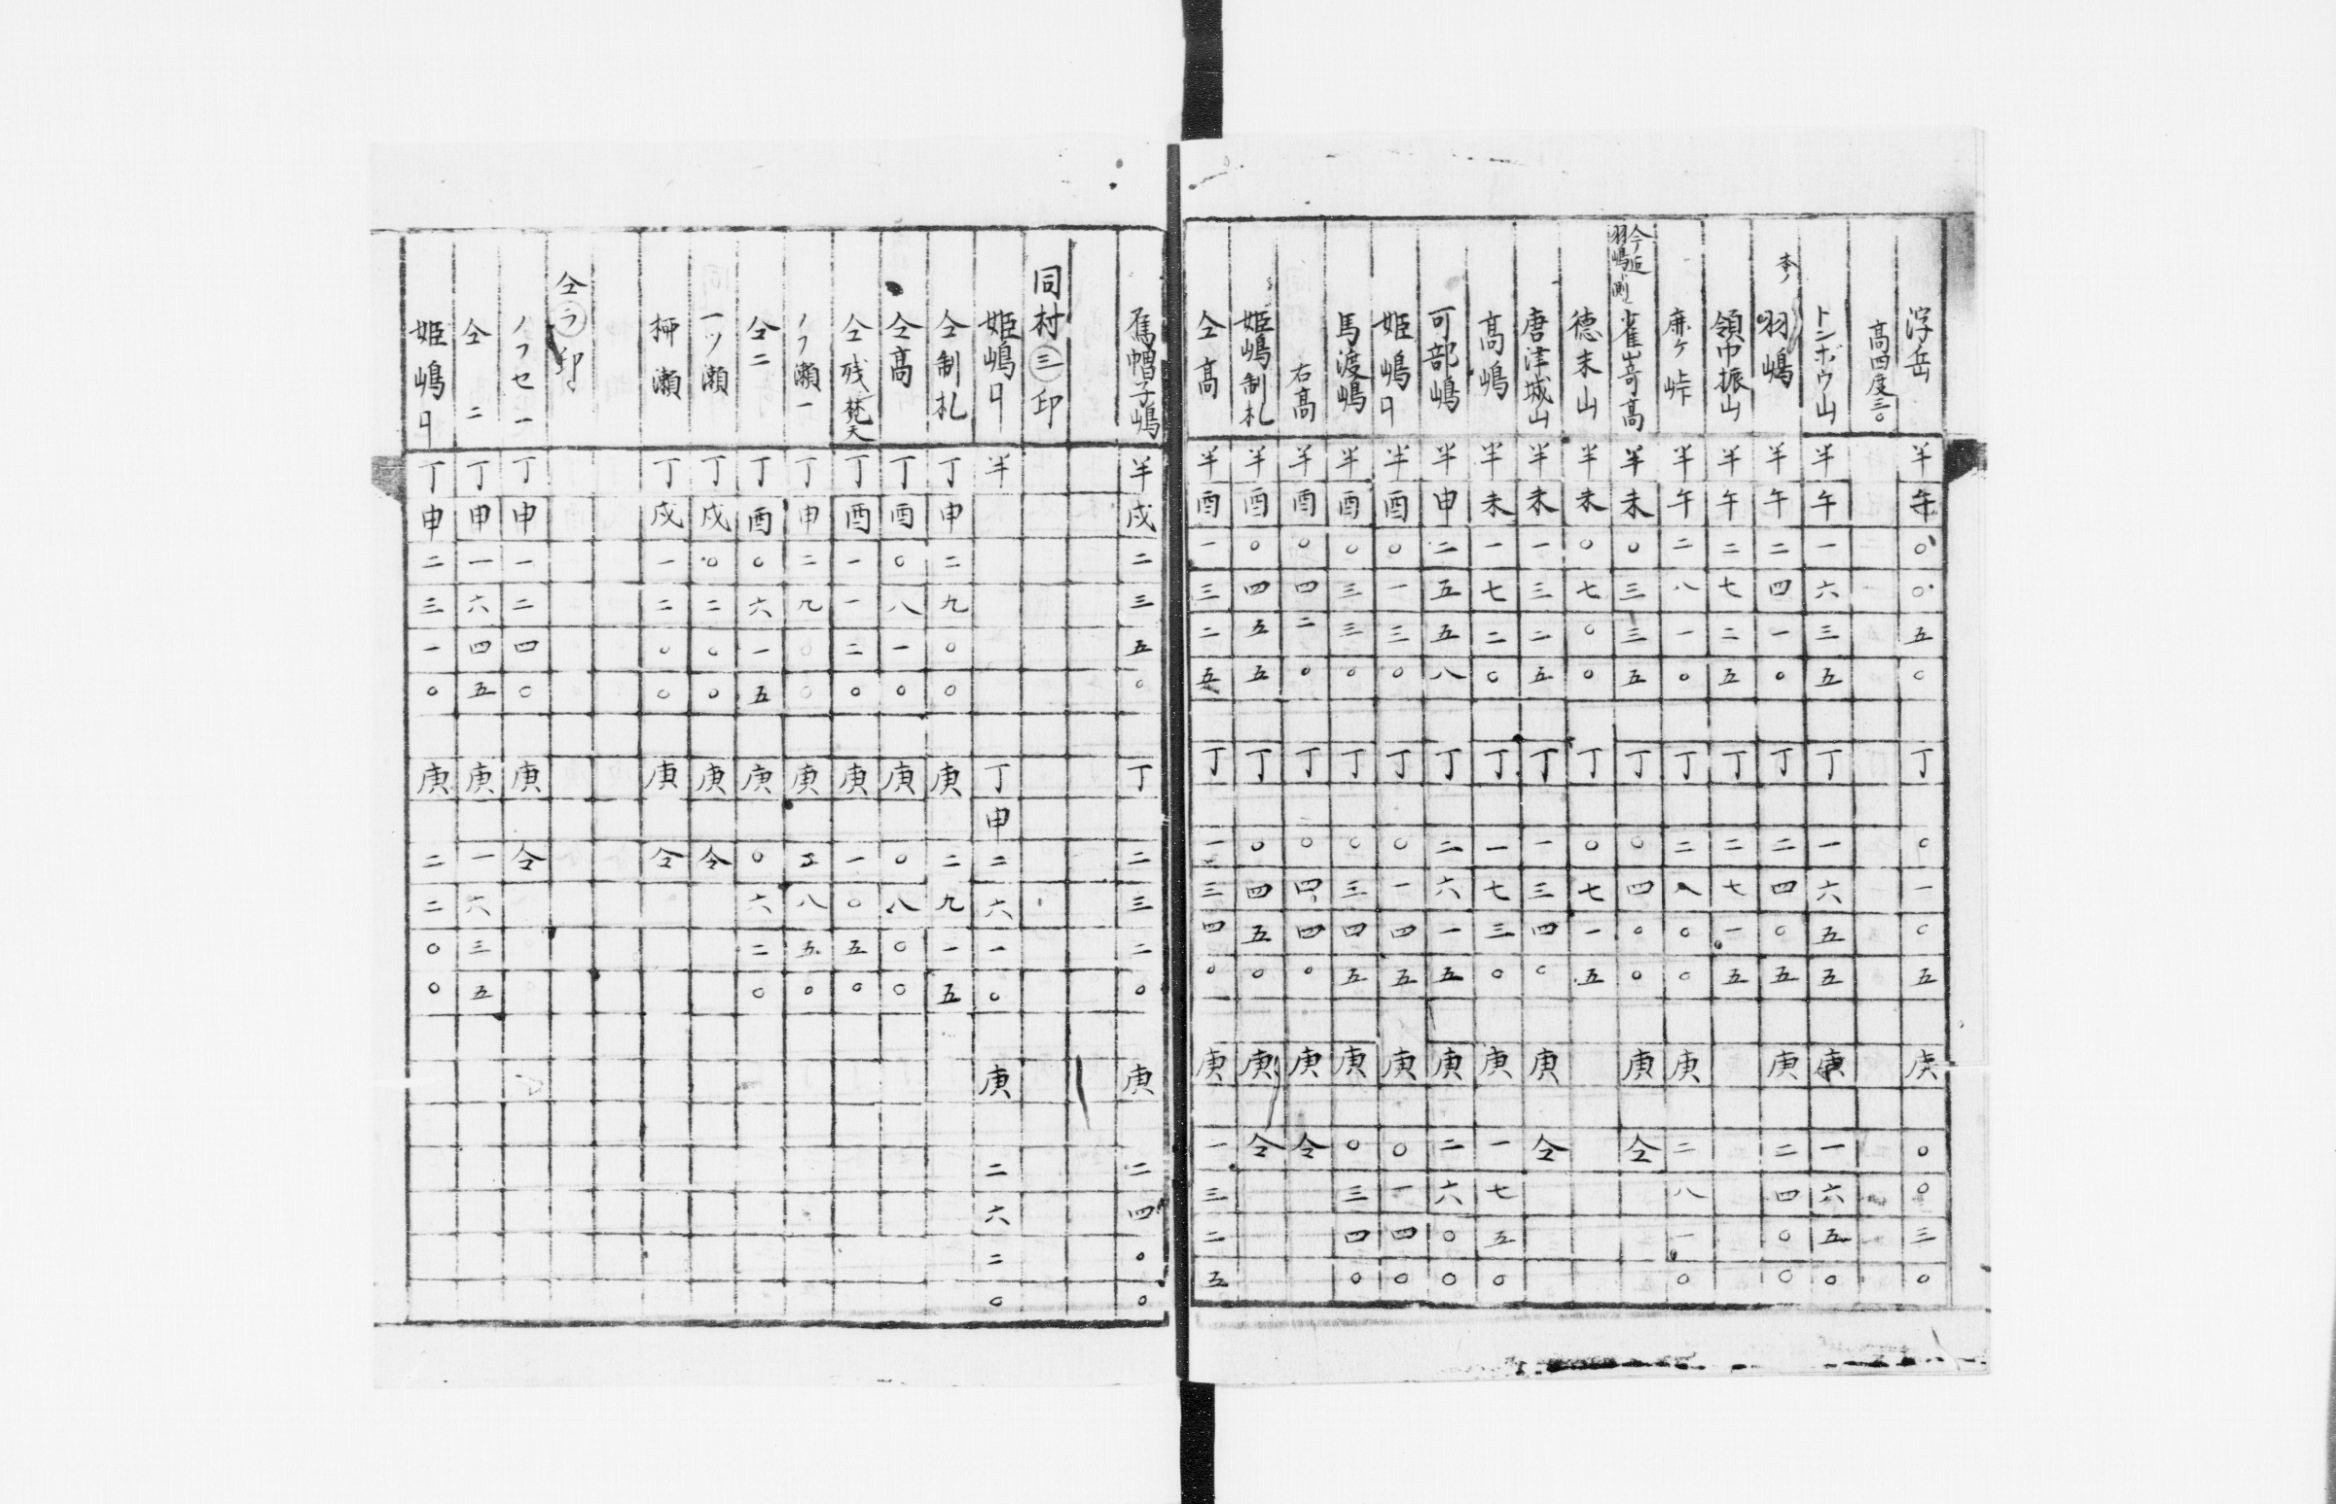 浮岳 半午〇〇五〇 丁〇一〇五 庚〇〇三〇
高四度三〇
トンボウ山 半午一六三五 丁一六五五 庚一六五〇
本ノ 羽嶋 半午二四一〇 丁二四〇五 庚二四〇〇
領巾振山 半午二七二五 丁二七一五
鹿ケ峠 半午二八一〇 丁二八〇〇 庚二八一〇
雀嵜高 半未〇三三五 丁〇四〇〇 庚仝
徳末山 半未〇七〇〇 丁〇七一五
唐津城山 半未一三二五 丁一三四〇 庚仝
高嶋 半未一七二〇 丁一七三〇 庚一七五〇
可部嶋 半申二五五八 丁二六一五 庚二六〇〇
姫嶋 半酉〇一三〇 丁〇一四五 庚〇一四〇
馬渡嶋 半酉〇三三〇 丁〇三四五 庚〇三四〇
右高 半酉〇四二〇 丁〇四四〇 庚仝
姫嶋制札 半酉〇四五五 丁〇四五〇 庚仝
仝高 半酉一三二五 丁一三四〇 庚一三二五
烏帽子嶋 半戌二三五〇 丁二三二〇 庚二四〇〇
同村㊂印
姫嶋 半 丁申二六一〇 庚二六二〇
仝制札 丁申二九〇〇 庚二九一五
仝高 丁酉〇八一〇 庚〇八〇〇
仝残梵天 丁酉一一二〇 庚一〇五〇
ノフ瀬一 丁申二九〇〇 庚二八五〇
仝二 丁酉〇六一五 庚〇六二〇
一ツ瀬 丁戌〇二〇〇 庚仝
柳瀬 丁戌一二〇〇 庚仝
仝㋶印
ノフセ一 丁申一二四〇 庚仝
仝二 丁申一六四五 庚一六三五
姫嶋 丁申二三一〇 庚二二〇〇